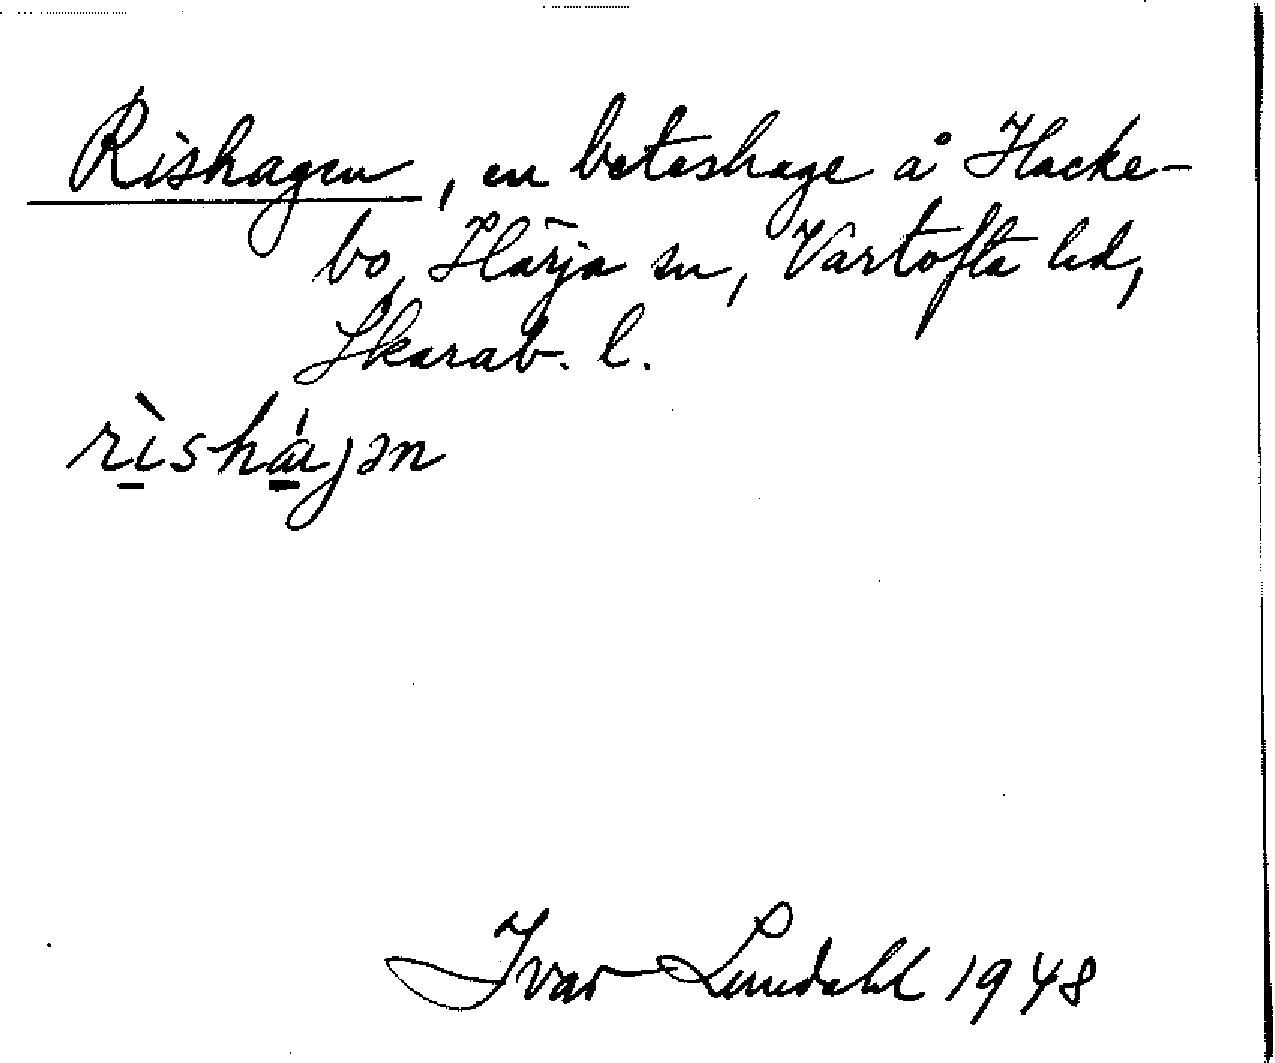 Rishagen, en beteshage å Hacke-
bo, Härja sn, Vartofta hd,
Skarab. l.
rìshágən
Ivar Lundahl 1948